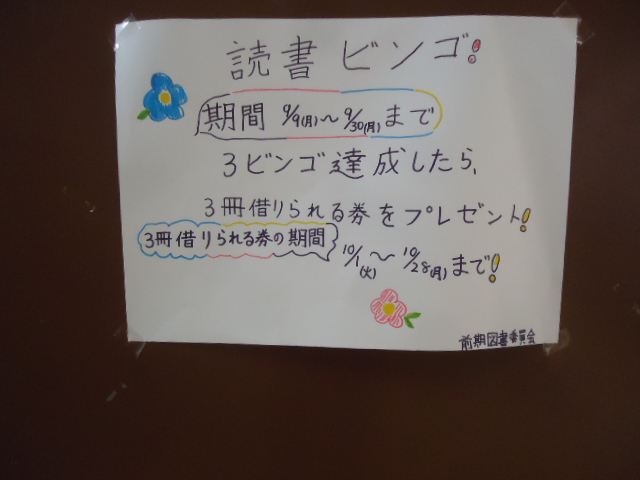 読書ビンゴ!
期間 9/9(月)～9/30(月)まで
3ビンゴ達成したら、
3冊借りられる券をプレゼント!
3冊借りられる券の期間 10/1(火)～10/28(月)まで!
前期図書委員会